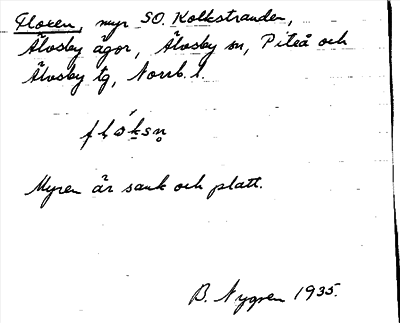 Floxen, myr SO. Kolkstranden,
Älvsby ägor, Älvsby sn, Piteå och
Älvsby tg, Norrb. l.
Myren är sank och platt.
B. Nygren 1935.